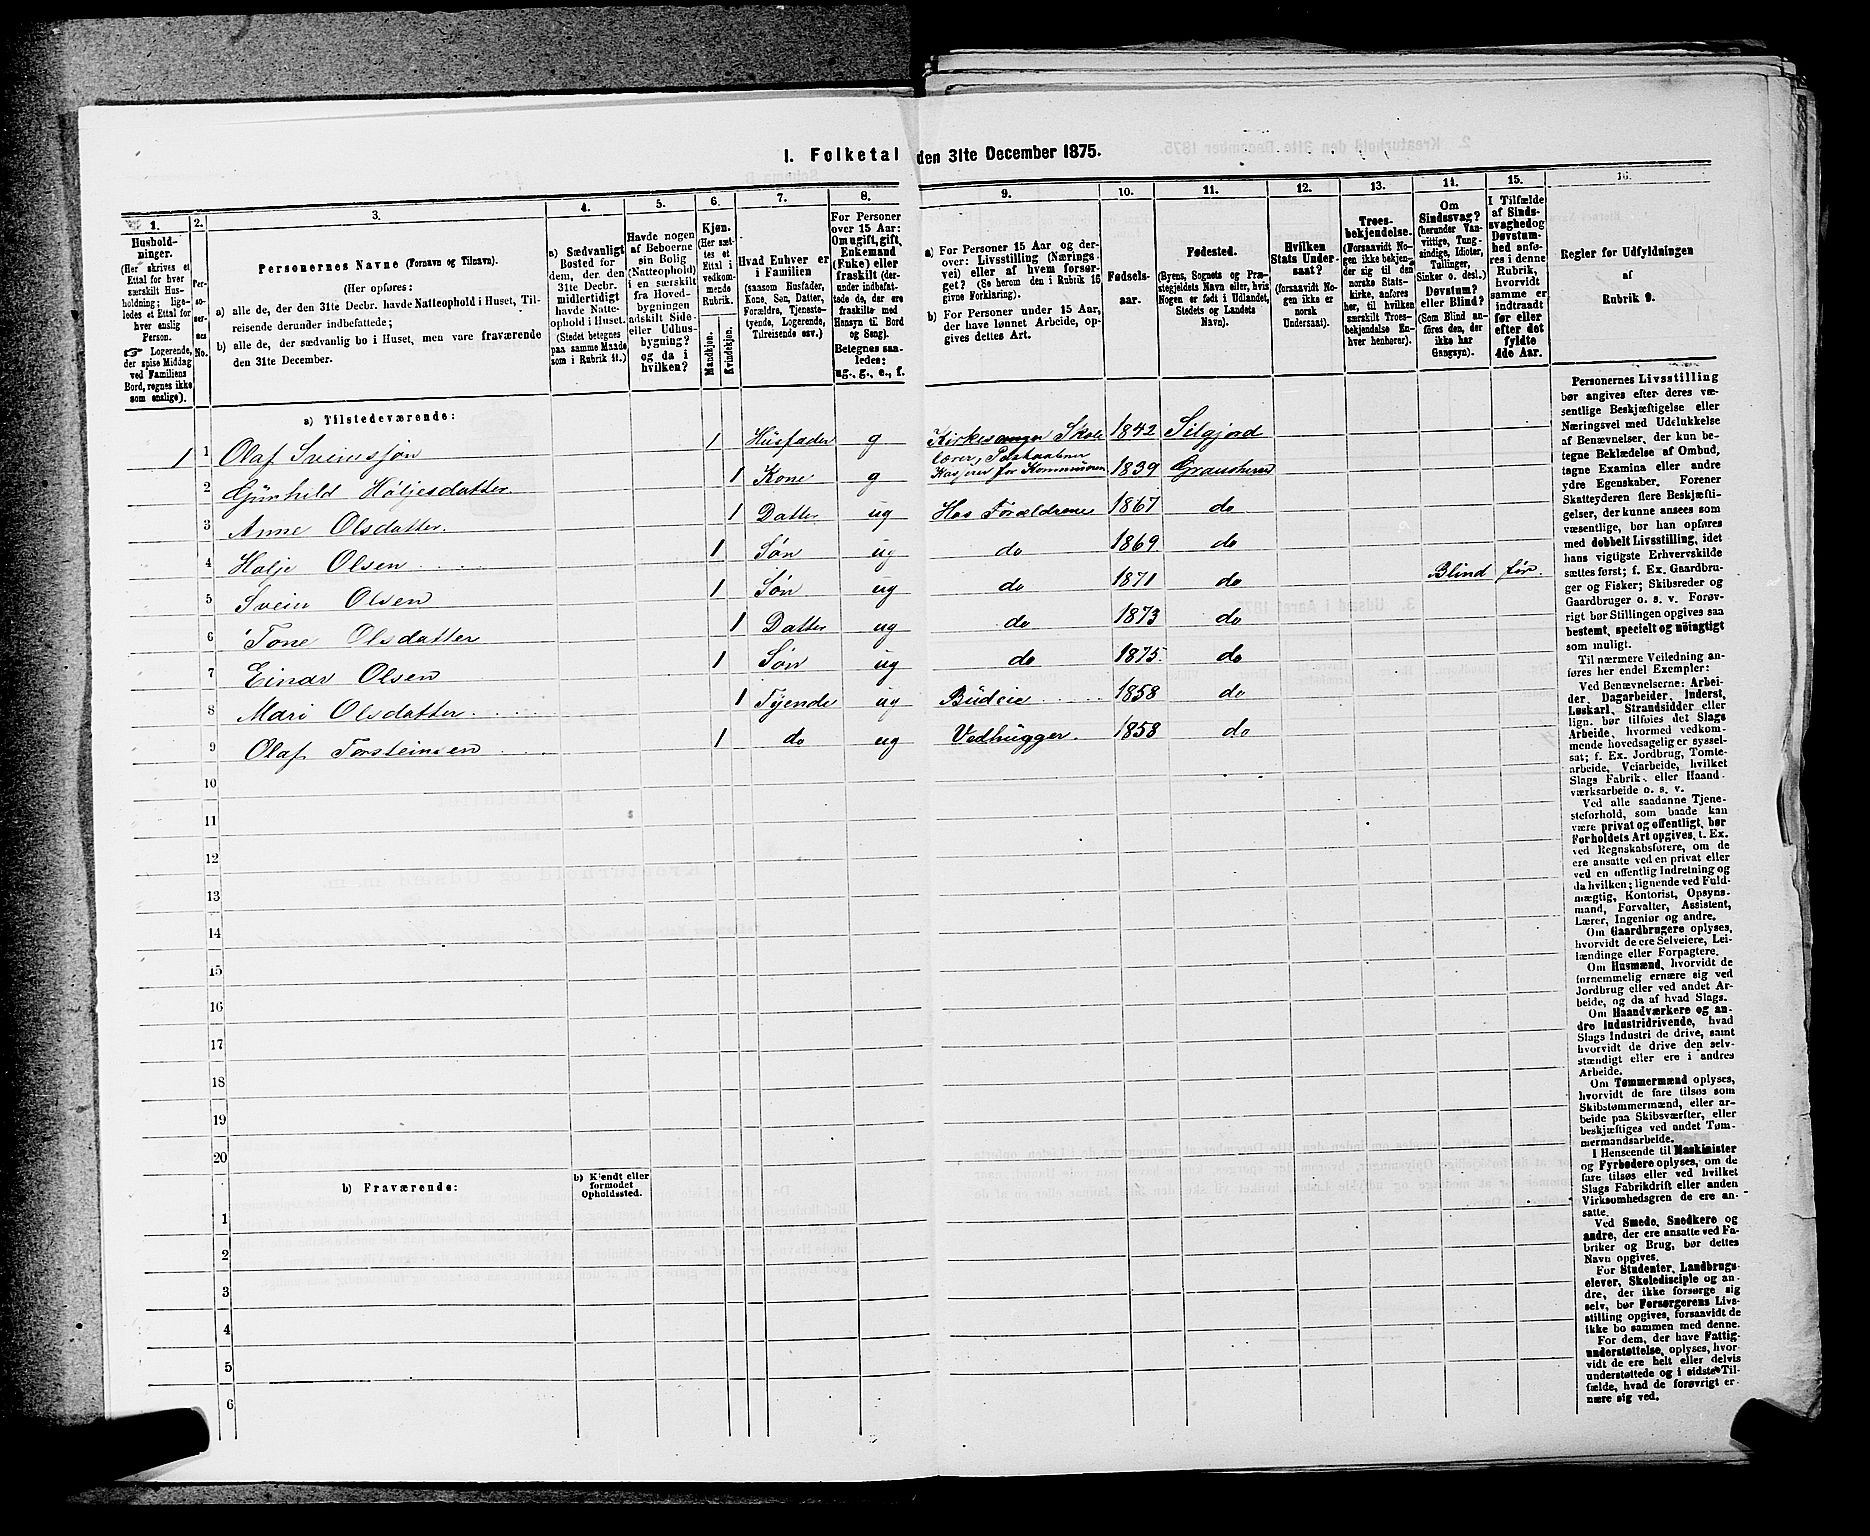 1. Folketal den 31te December 1875.
1. 2. 3. 4. 5. 6. 7. 8. 9. 10. 11. 12. 13. 14. 15. 16.
Hushold-
ninger.
(Her skrives et
Ettal for hver
særskilt Hus-
holdning; lige-
ledes et Ettal for
hver enslig
Person.
☞ Logerende,
der spise Middag
ved Familiens
Bord, regnes ikke
som enslige).
Per-
so-
ner-
nes
No.
Personernes Navne (Fornavn og Tilnavn).
(Her opføres:
a) alle de, der den 31te Decbr. havde Natteophold i Huset, Til-
reisende derunder indbefattede;
b) alle de, der sædvanlig bo i Huset, men vare fraværende
den 31te December.
a) Sædvanligt
Bosted for
dem, der den
31te Decbr.
midlertidigt
havde Natte-
ophold i Huset.
(Stedet betegnes
paa samme Maade
som i Rubrik 11.)
Havde nogen
af Beboerne
sin Bolig
(Natteophold)
i en særskilt
fra Hoved-
bygningen
adskilt Side-
eller Udhus-
bygning?
og da i
hvilken?
Kjøn.
(Her sæt-
tes et
Ettal i
vedkom-
mende
Rubrik.
Mandkjøn.
Kvindekjøn.
Hvad Enhver er
i Familien
(saasom Husfader,
Kone, Søn, Datter,
Forældre, Tjeneste-
tyende, Logerende,
Tilreisende osv.)
For Personer
over 15 Aar:
Om ugift, gift,
Enkemand
(Enke) eller
fraskilt (der-
under indbefat-
tede de, der ere
fraskilte med
Hensyn til Bord
og Seng).
Betegnes saa-
ledes:
ug., g., e., f.
a) For Personer 15 Aar og der-
over: Livsstilling (Nærings-
vei) eller af hvem forsør-
get? (Se herom den i Rubrik 16
givne Forklaring).
b) For Personer under 15 Aar,
der have lønnet Arbeide, op-
gives dettes Art.
Fødsels-
aar.
Fødested.
(Byens, Sognets og Præ-
stegjeldets Navn eller, hvis
Nogen er født i Udlandet,
Stedets og Landets
Navn).
Hvilken
Stats Under-
saat?
(forsaavidt No-
gen ikke er
norsk
Undersaat).
Troes-
bekjendelse.
(Forsaavidt No-
gen ikke bekjen-
der sig til den
norske Stats-
kirke, anføres
her, til hvilken
særskilt Troes-
bekjendelse En-
hver henhører).
Om
Sindssvag?
(herunder Van-
vittige, Tung-
sindige, Idioter,
Tullinger,
Sinker o. desl.)
Døvstum?
eller Blind?
(Som Blind an-
føres den, der
ikke har
Gangsyn).
I Tilfælde
af Sinds-
svaghed og
Døvstum-
hed anfø-
res i denne
Rubrik,
hvorvidt
samme er
indtraadt
før eller
efter det
fyldte
4de Aar.
Regler for Udfyldningen
af
Rubrik 9.
a) Tilstedeværende:
1 1 Olaf Sveinssøn 1 Husfader g Kirkesanger Skole 1842 Silgjord
lærer, Postaabner
2 Gunhild Høljesdatter 1 Kone g Kasjerer for Kommunen 1839 Gransherred
3 Anne Olsdatter. 1 Datter ug Hos Forældrene 1867 do
4 Halje Olsen 1 Søn ug do 1869 do
5 Svein Olsen 1 Søn ug do 1871 do Blind før.
6 Tone Olsdatter 1 Datter ug do 1873 do
7 Einar Olsen 1 Søn ug do 1875. do
8 Mari Olsdatter 1 Tyende ug Budeie 1858 do
9 Olaf Torsteinsen 1 do ug Vedhugger. 1858 do
10
11
12
13
14
15
16
17
18
19
20
b) Fraværende:
b) Kjendt eller
formodet
Opholdssted.
1
2
3
4
5
6
Personernes Livsstilling
bør angives efter deres væ-
sentlige Beskjæftigelse eller
Næringsvei med Udelukkelse
af Benævnelser, der kun be-
tegne Beklædelse af Ombud,
tagne Examina eller andre
ydre Egenskaber. Forener
Skatteyderen flere Beskjæfti-
gelser, der kunne ansees som
væsentlige, bør han opføres
med dobbelt Livsstilling, idet
hans vigtigste Erhvervskilde
sættes først; f. Ex. Gaardbru-
ger og Fisker; Skibsreder og
Gaardbruger o. s. v. Forøv-
rigt bør Stillingen opgives saa
bestemt, specielt og nøiagtigt
som muligt.
Til nærmere Veiledning an-
føres her endel Exempler:
Ved Benævnelserne: Arbei-
der, Dagarbeider, Inderst,
Løskarl, Strandsidder eller
lign. bør tilføies det Slags
Arbeide, hvormed vedkom-
mende hovedsagelig er syssel-
sat; f. Ex. Jordbrug, Tomte-
arbeide, Veiarbeide, hvilket
Slags Fabrik- eller Haand-
værksarbeide o. s. v.
Ved alle saadanne Tjene-
steforhold, som baade kan
være privat og offentligt, bør
Forholdets Art opgives, t. Ex.
ved Regnskabsførere, om de
ere ansatte ved en privat eller
ved en offentlig Indretning og
da hvilken; lignende ved Fuld-
mægtig, Kontorist, Opsyns-
mand, Forvalter, Assistent,
Lærer, Ingeniør og andre.
Om Gaardbrugere oplyses,
hvorvidt de ere Selveiere, Lei-
lændinge eller Forpagtere.
Om Husmænd, hvorvidt de
fornemmelig ernære sig ved
Jordbrug eller ved andet Ar-
beide, og da af hvad Slags.
Om Haandværkere og an-
dre Industridrivende, hvad
Slags Industri de drive, samt
hvorvidt de drive den selv-
stændigt eller ere i andres
Arbeide.
Om Tømmermænd oplyses,
hvorvidt de fare tilsøs som
Skibstømmermænd, eller ar-
beide paa Skibsværfter, eller
beskjæftiges ved andet Tøm-
mermandsarbeide.
I Henseende til Maskinister
og Fyrbødere oplyses, om de
fare tilsøs eller ved hvilket
Slags Fabrikdrift eller anden
Virksomhedsgren de ere an-
satte.
Ved Smede, Snedkere og
andre, der ere ansatte ved Fa-
briker og Brug, bør dettes
Navn opgives.
For Studenter, Landbrugs-
elever, Skoledisciple og an-
dre, der ikke forsørge sig
selv, bør Forsørgerens Livs-
stilling opgives, forsaavidt de
ikke bo sammen med denne.
For dem, der have Fattig-
understøttelse, oplyses, hvor-
vidt de ere helt eller delvis
understøttede og i sidste Til-
fælde, hvad de forøvrigt er-
nære sig ved.